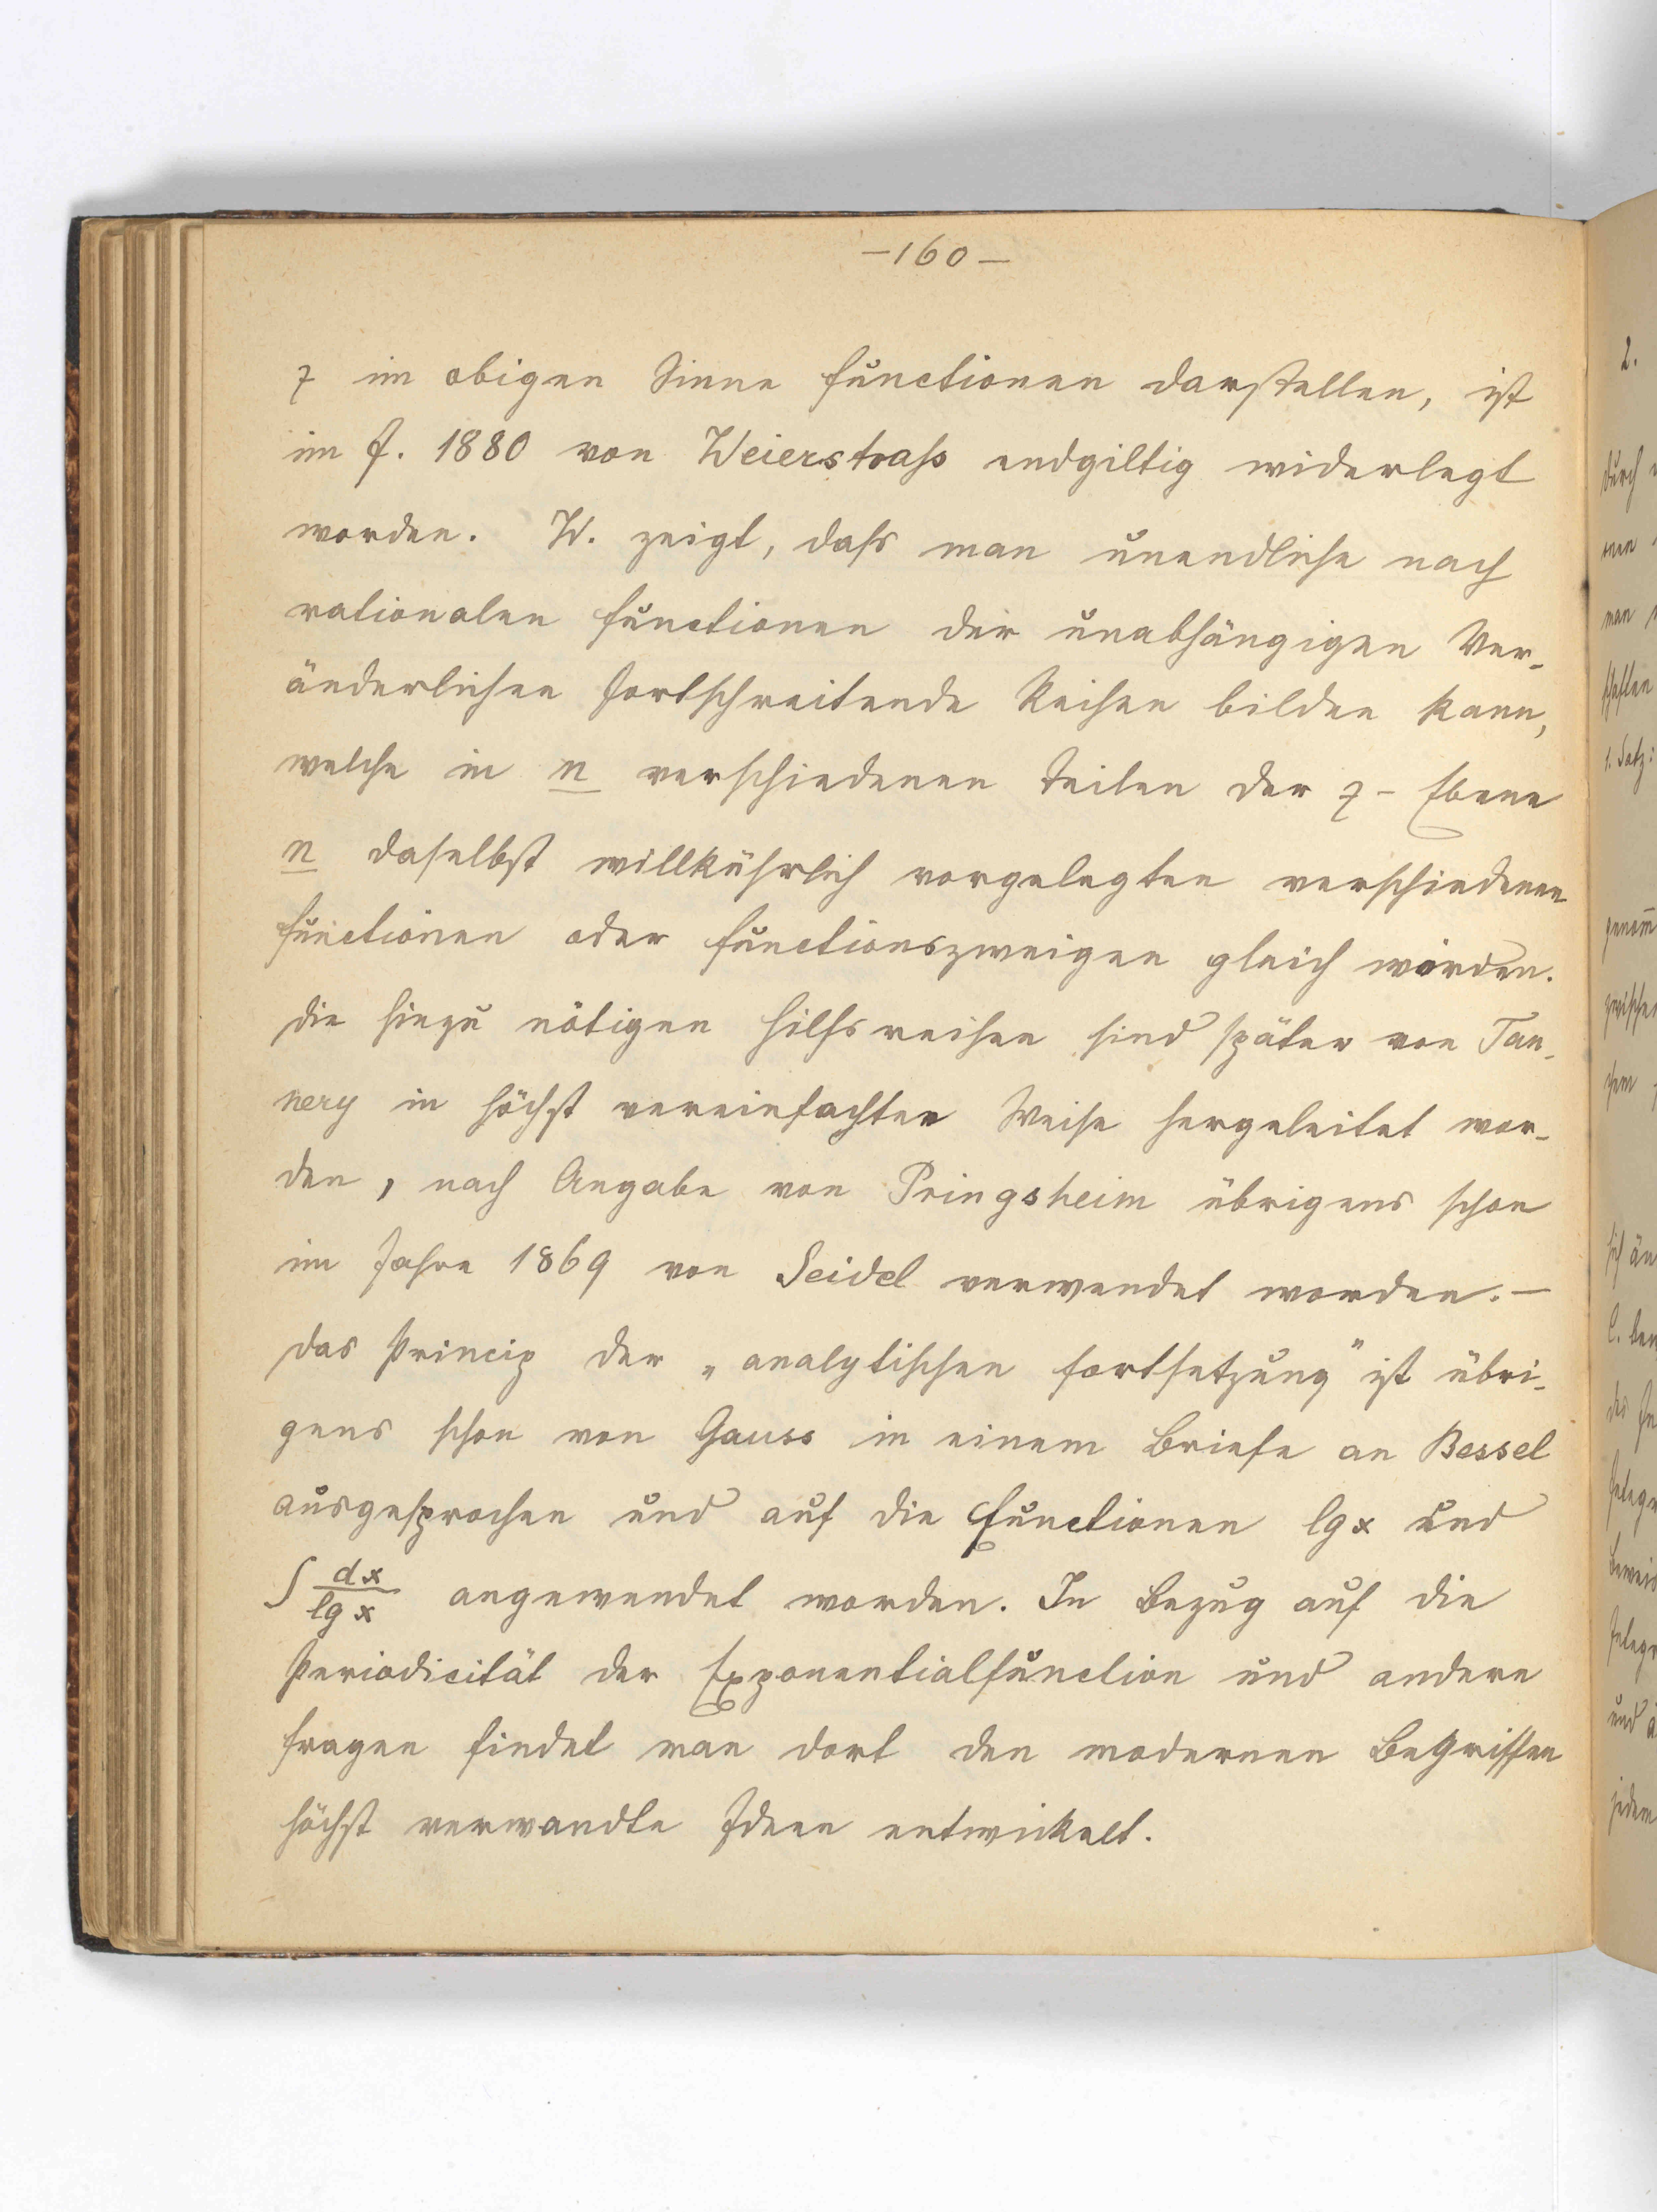 — 160 —
z im obigen Sinne Functionen darstellen, ist
im J. 1880 von Weierstraſs endgiltig widerlegt
worden. W. zeigt, daſs man unendliche nach
rationalen Functionen der unabhängigen Ver-
änderlichen fortschreitende Reihen bilden kann,
welche in n verschiedenen Teilen der z-Ebene
n daselbst willkührlich vorgelegten verschiedenen
Functionen oder Functionszweigen gleich würden.
Die hiezu nötigen Hilfsreihen sind später von Tan-
nery in höchst vereinfachter Weise hergeleitet wor-
den, nach Angabe von Pringsheim übrigens schon
im Jahre 1869 von Seidel verwendet worden. —
Das Princip der „analytischen Fortsetzung" ist übri-
gens schon von Gauss in einem Briefe an Bessel
ausgesprochen und auf die Functionen lg x und
∫ dx/lg x angewendet worden. In Bezug auf die
Periodicität der Exponentialfunction und andere
Fragen findet man dort den modernen Begriffen
höchst verwandte Ideen entwickelt.
2.
durch
man
1. Satz:
genom̄
und
jedem